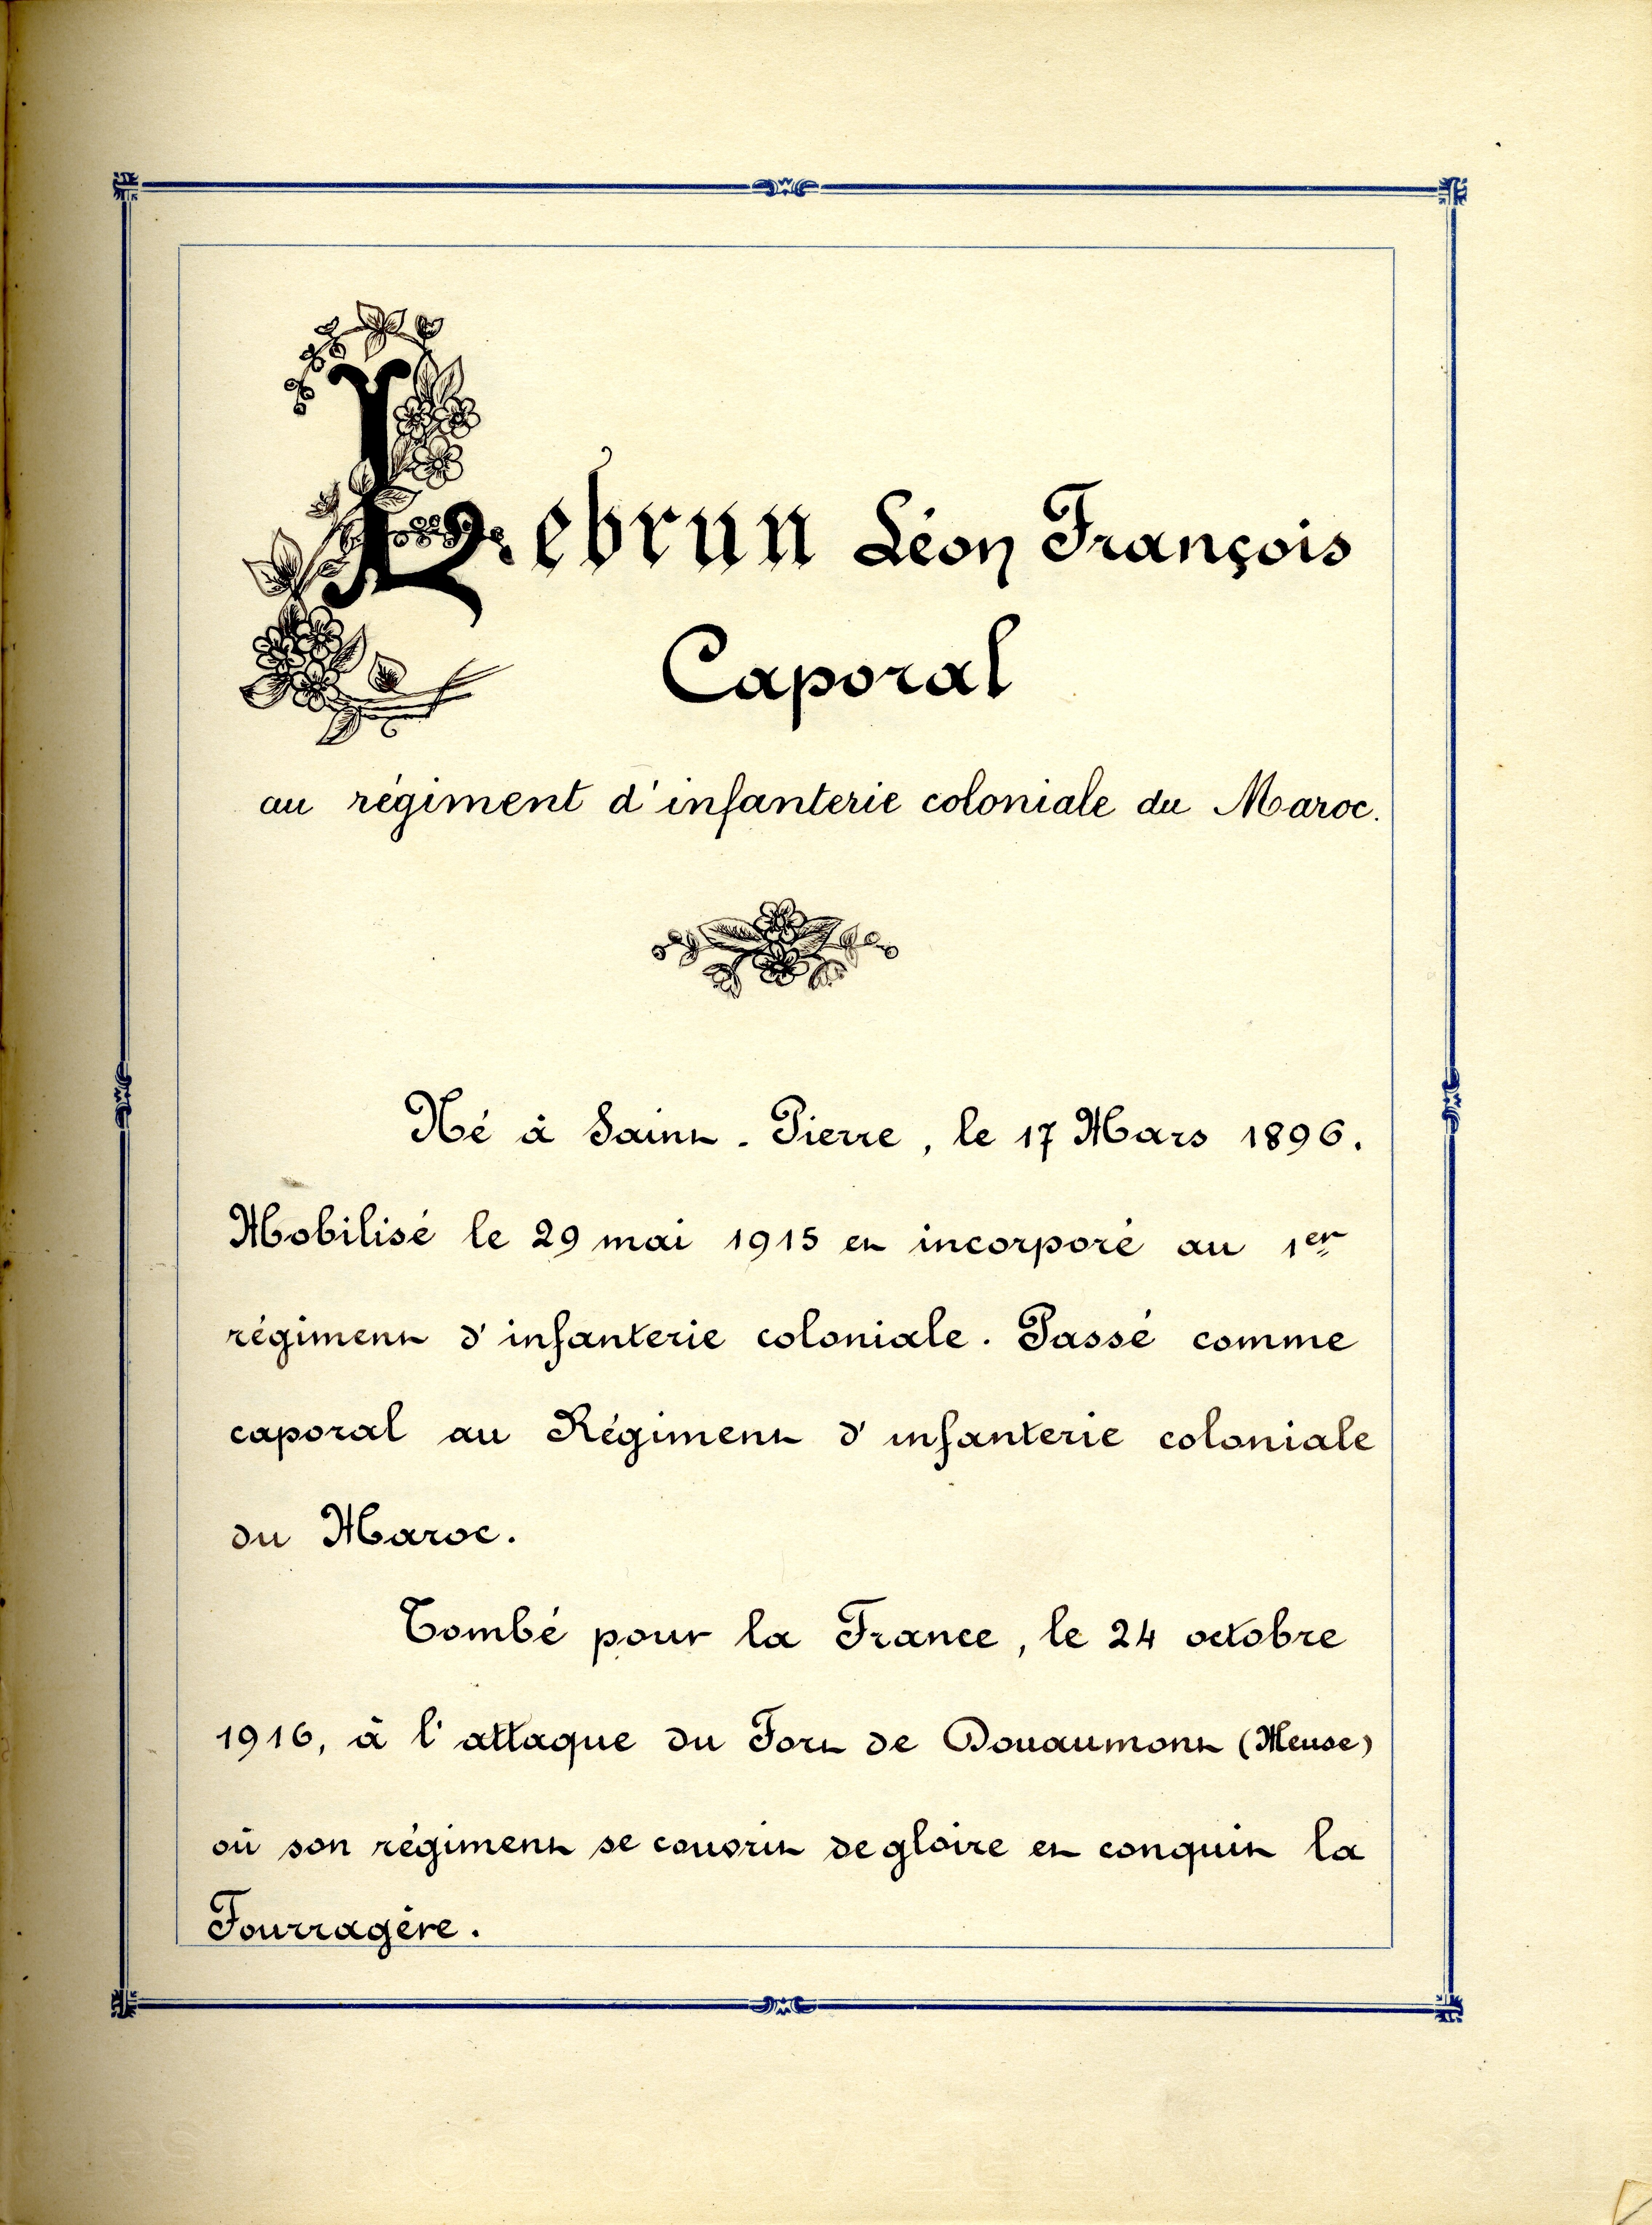 Lebrun Léon François
Caporal
au régiment d'infanterie coloniale du Maroc.
Né à Saint-Pierre, le 17 Mars 1896.
Mobilisé le 29 mai 1915 et incorporé au 1er
régiment d'infanterie coloniale. Passé comme
caporal au Régiment d'infanterie coloniale
du Maroc.
Tombé pour la France, le 24 octobre
1916, à l'attaque du Fort de Douaumont (Meuse)
où son régiment se couvrit de gloire et conquit la
Fourragère.